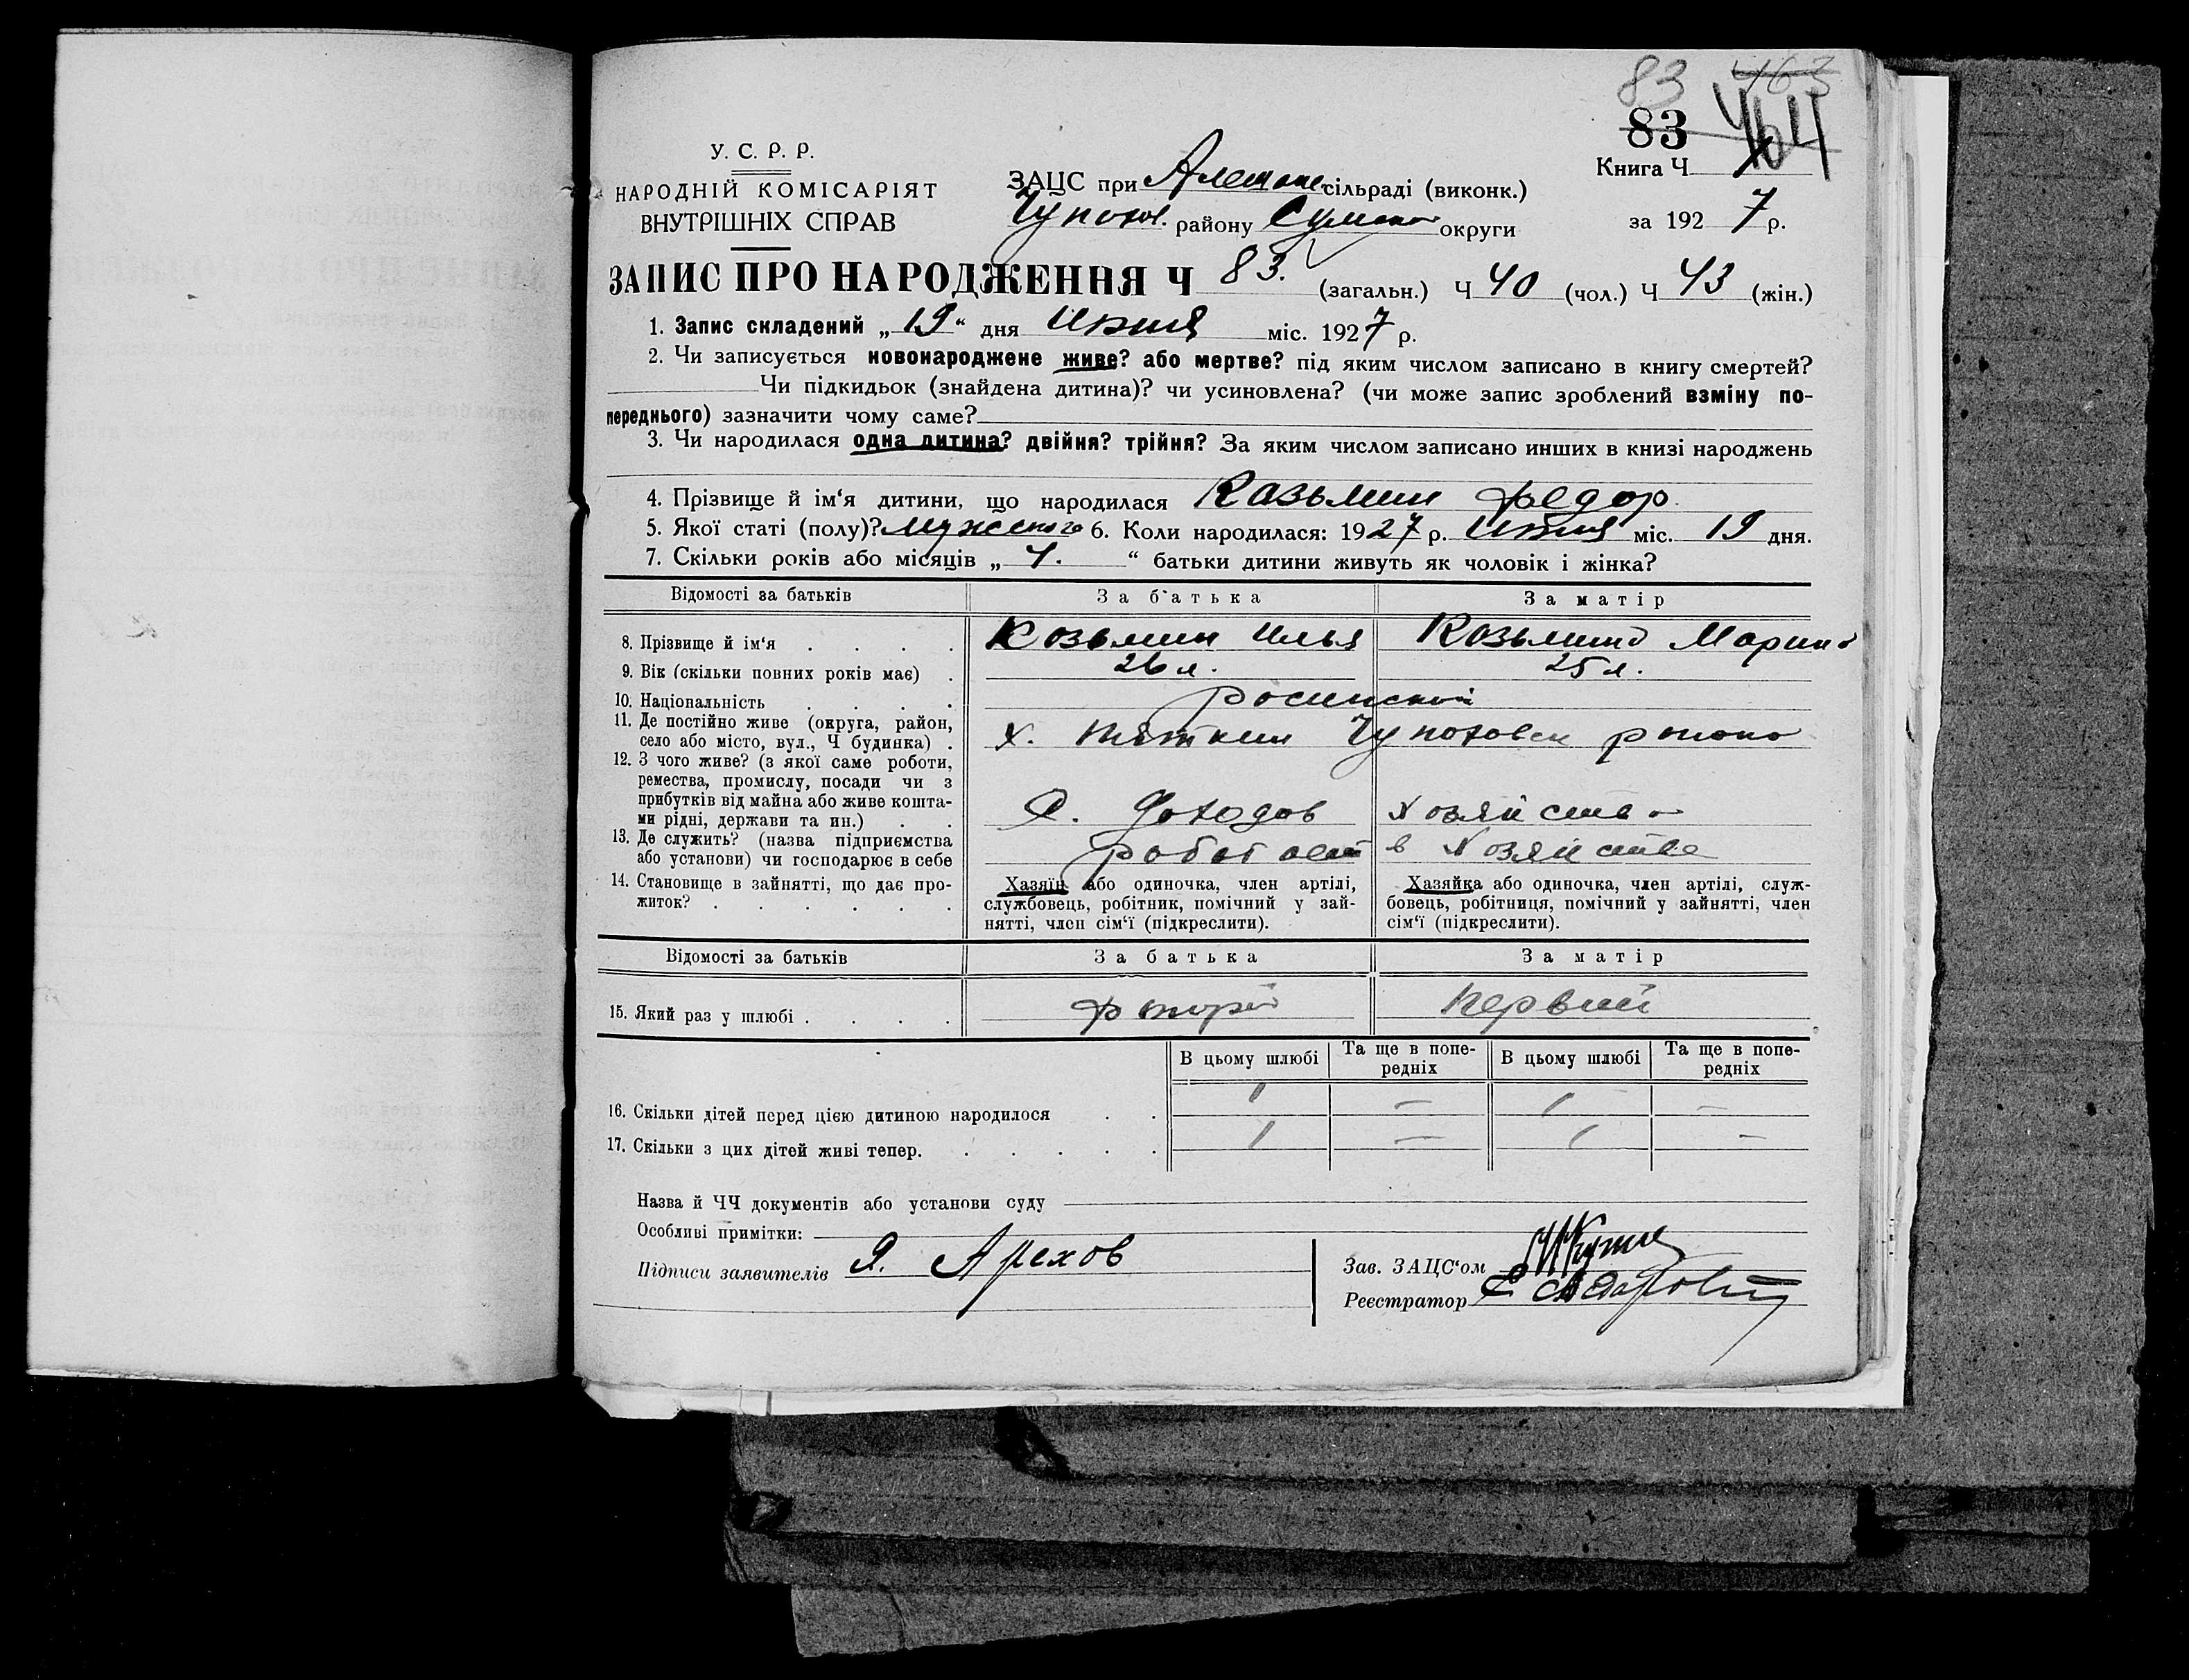 83 463
83 464
У. С. Р. Р.
НАРОДНІЙ КОМІСАРІЯТ
ВНУТРІШНІХ СПРАВ
ЗАЦС при сільраді (виконк.)
району округи
Книга Ч
за 1927 р.
ЗАПИС ПРО НАРОДЖЕННЯ Ч 83. (загальн.) Ч 40 (чол.) Ч 43 (жін.)
1. Запис складений „19“ дня міс. 1927 р.
2. Чи записується новонароджене живе? або мертве? під яким числом записано в книгу смертей?
Чи підкидьок (знайдена дитина)? чи усиновлена? (чи може запис зроблений взміну по-
переднього) зазначити чому саме?
3. Чи народилася одна дитина? двійня? трійня? За яким числом записано инших в книзі народжень
4. Прізвище й ім‘я дитини, що народилася Козьмин Федор
5. Якої статі (полу)? мужского 6. Коли народилася: 1927 р. міс. 19 дня.
7. Скільки років або місяців „ 4. “ батьки дитини живуть як чоловік і жінка?
Відомості за батьків За батька За матір
8. Прізвище й ім‘я . . . . Козьмин Илья Козьмина Марина
9. Вік (скільки повних років має) . 26 л. 25 л.
10. Національність . . . .
11. Де постійно живе (округа, район,
село або місто, вул., Ч будинка) . х.
12. З чого живе? (з якої саме роботи,
ремества, промислу, посади чи з
прибутків від майна або живе кошта-
ми рідні, держави та ин.) . . доходов хозяйства
13. Де служить? (назва підприємства
або установи) чи господарює в себе работает в хозяйстве
14. Становище в зайнятті, що дає про-
житок? . . . . . .
Хазяїн або одиночка, член артілі,
службовець, робітник, помічний у зай-
нятті, член сім‘ї (підкреслити).
Хазяйка або одиночка, член артілі, служ-
бовець, робітниця, помічний у зайнятті, член
сім‘ї (підкреслити).
Відомості за батьків За батька За матір
15. Який раз у шлюбі . . . . первий
В цьому шлюбі Та ще в попе-
редніх В цьому шлюбі Та ще в попе-
редніх
16. Скільки дітей перед цією дитиною народилося . . 1 — 1 —
17. Скільки з цих дітей живі тепер. . . . . . 1 — 1 —
Назва й ЧЧ документів або установи суду
Особливі примітки:
Підписи заявителів Я. Орехов
Зав. ЗАЦС‘ом
Реєстратор